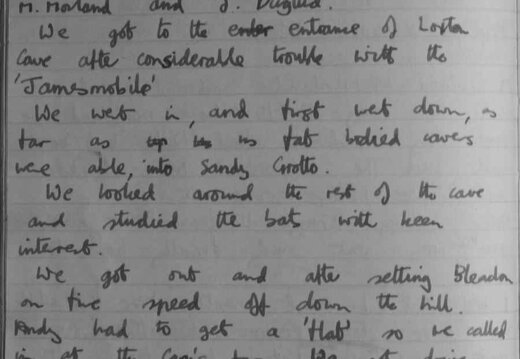 M. Morland and J. Duguid.
We got to the enter entrance of Loxton
Cave after considerable trouble with the
'Jamesmobile'
We wet in, and first wet down, as
far as up us fat bodied cavers
were able, into Sandy Grotto.
We looked around the rest of the cave
and studied the bats with keen
interest.
We got out and after setting Bleadon
on fire speed off down the hill.
Andy had to get a 'Hat' so we called
in at the